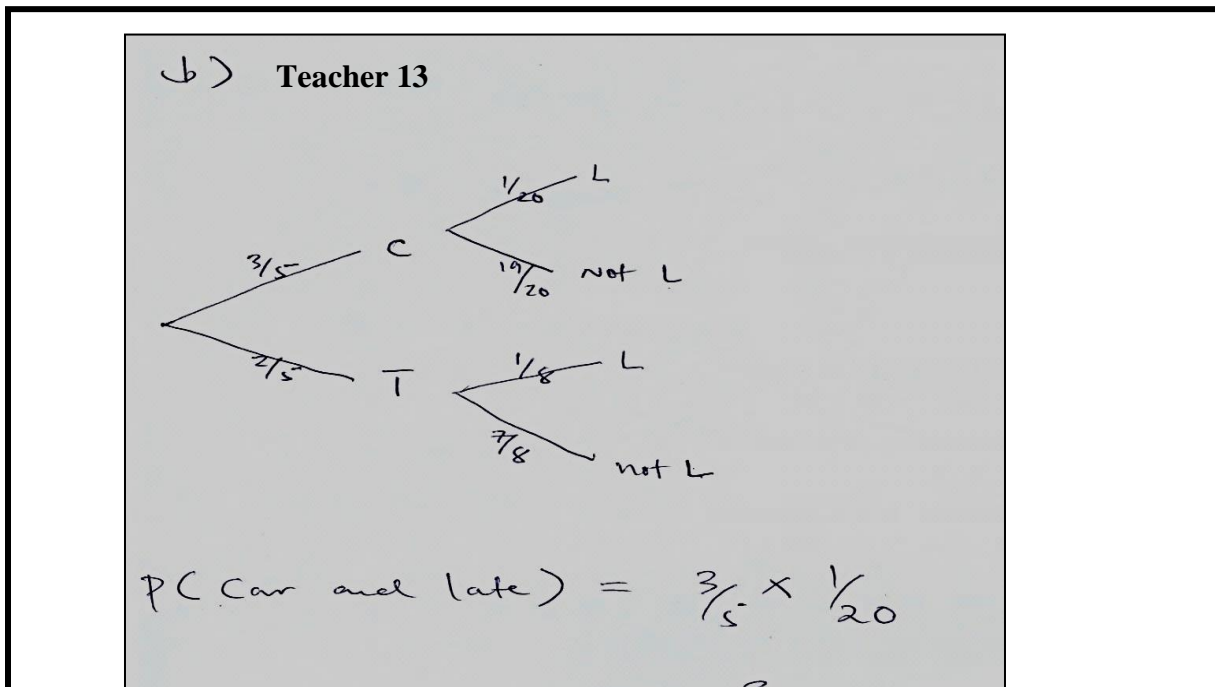 b) Teacher 13
1/20 L
3/5 C
19/20 Not L
2/5 T
1/8 L
7/8 not L
P(Car and late) = 3/5 × 1/20